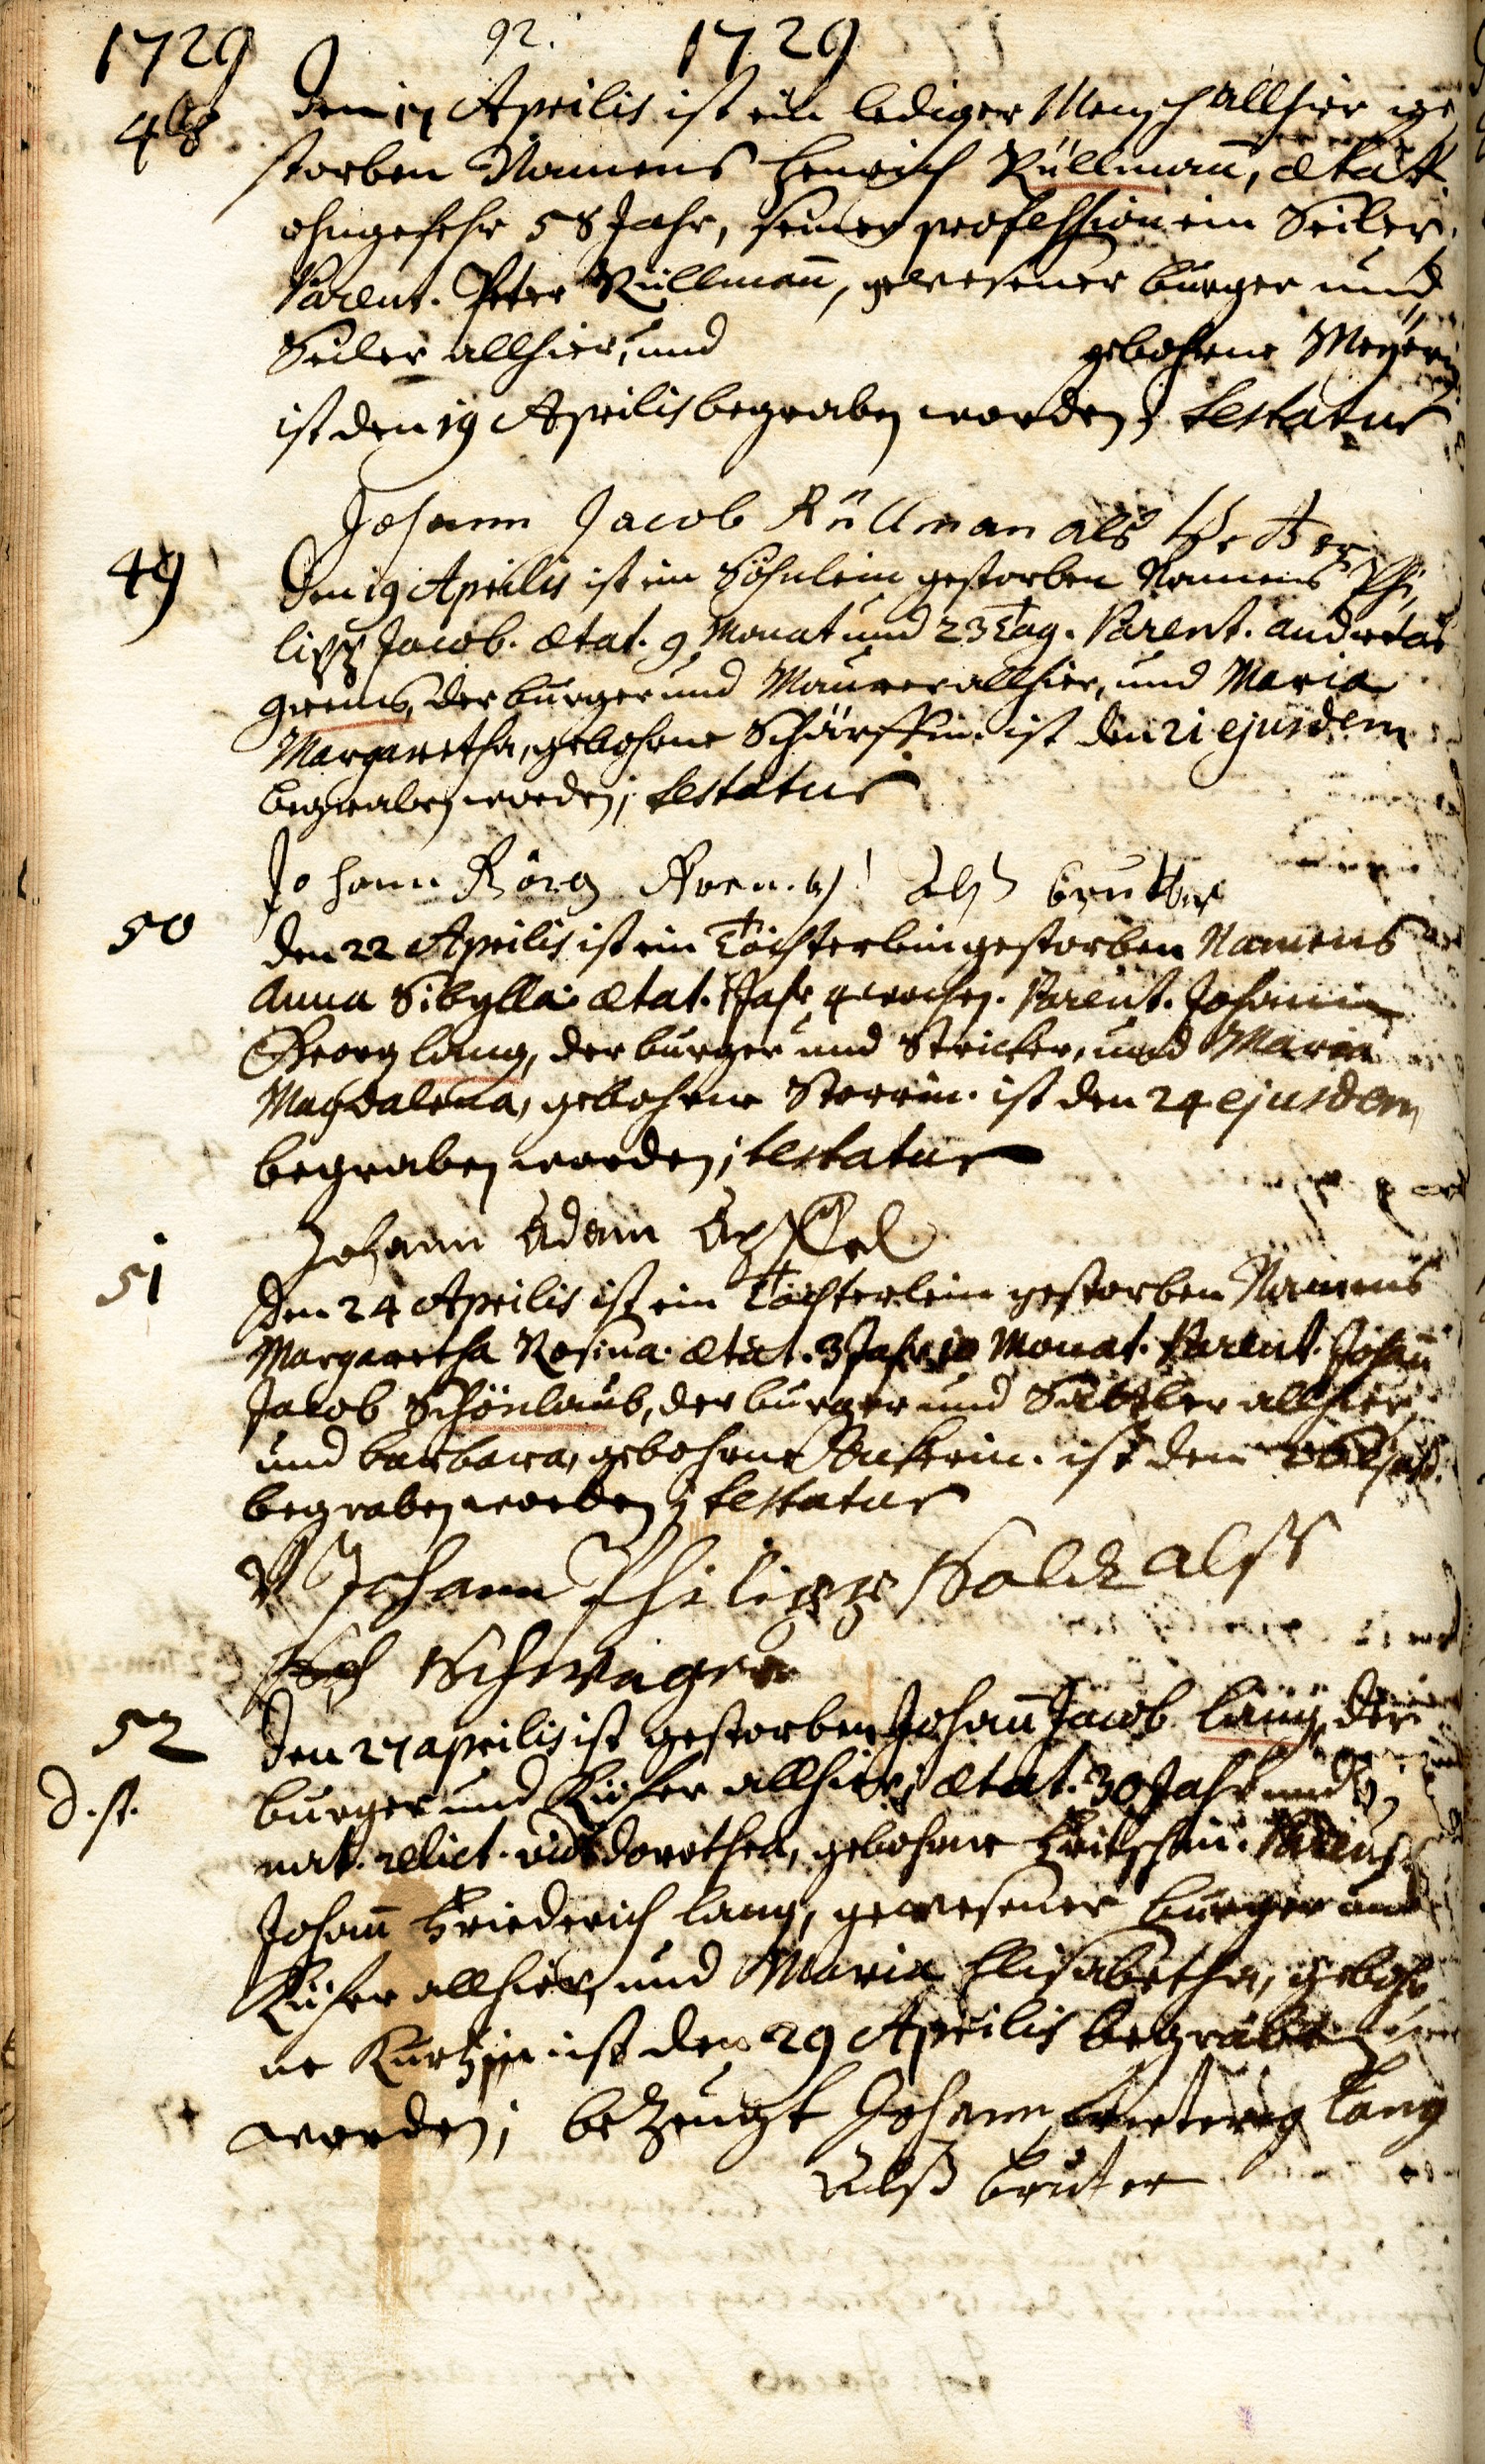 1729 92. 1729
48 Den 17 Aprilis ist ein lediger Mensch allhier ge
storben Namens Henrich Rüllmañ, ætat.
ohngefehr 58 Jahr, seiner profession ein Seiler.
Parent. Peter Rüllmañ, gewesener burger und
Seiler allhier, und gebohrne Meyerin
ist den 19 Aprilis begraben worden; testatur
Johann Jacob Rüllman als Vetter
49 Den 19 Aprilis ist ein Söhnlein gestorben Namens Phi,
lipp Jacob. ætat. 9 Monat und 23 Tag. Parent. Andreas
der burger und Maurer allhier, und Maria
Margaretha, gebohrne Schärffin. ist den 21 ejusdem
begraben worden; testatur
Johann Görg als bruder
50 Den 22 Aprilis ist ein Töchterlein gestorben Namens
Anna Sibylla. ætat. 1 Jahr 4 wochen. Parent. Johann
Georg Lang, der burger und Stricker, und Maria
Magdalena, gebohrne Storrin. ist den 24 ejusdem
begraben worden; testatur
Johann Adam Apffel
51 Den 24 Aprilis ist ein Töchterlein gestorben Namens
Margaretha Rosina. ætat. 3 Jahr 10 Monat. Parent. Johañ
Jacob Schönlaub, der burger und Sattler allhier,
und barbara, gebohrne ist den
begraben worden; testatur
Johann Philipp als
Schwager
52 Den 27 aprilis ist gestorben Johañ Jacob Lang, der
d. st. burger und Küfer allhier; ætat. 30 Jahr und
nat. relict. vid. dorothea, gebohrne Fritschin. Parent.
Johañ Friederich Lang, gewesener burger und
Küfer allhier, und Maria Elisabetha, geboh
ne Kurtzin. ist den 29 Aprilis begraben
worden; bezeugt Johann Lang
Alß bruter